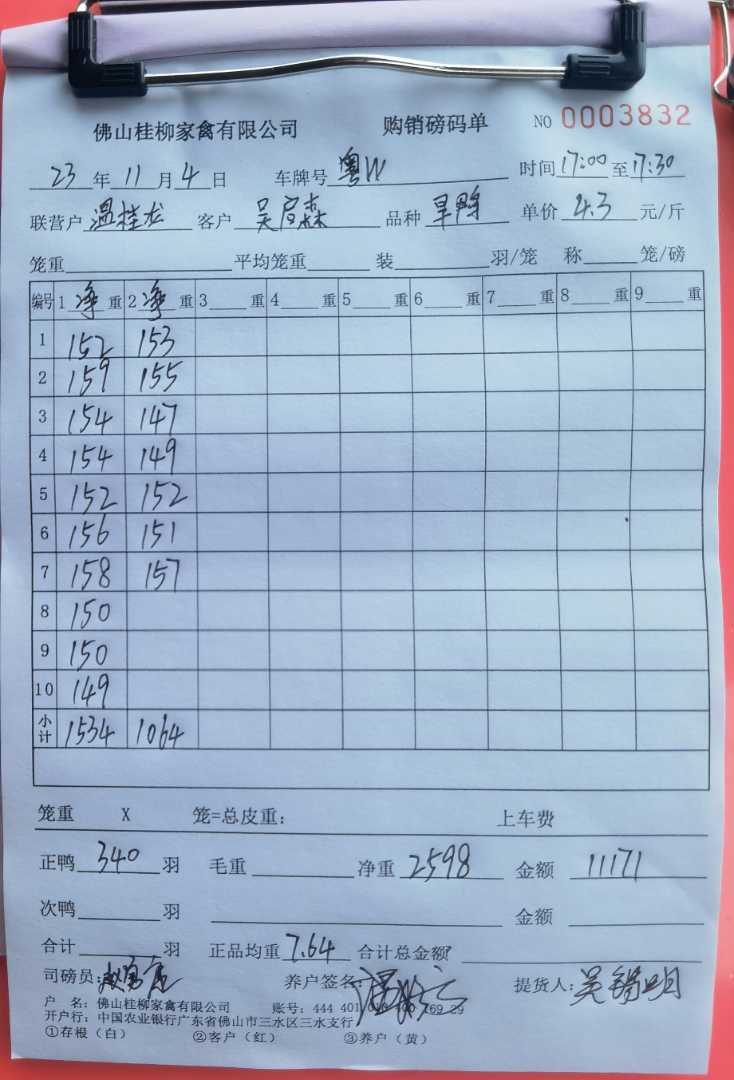 佛山桂柳家禽有限公司 购销磅码单 NO 0003832
23年11月4日 车牌号 粤W 时间17:00至17:30
联营户 温桂龙 客户 吴启森 品种 旱鸭 单价 4.3 元/斤
笼重 平均笼重 装 羽/笼 称 笼/磅
编号 1 净 重 2 净 重 3 重 4 重 5 重 6 重 7 重 8 重 9 重
1 152 153
2 159 155
3 154 147
4 154 149
5 152 152
6 156 151
7 158 157
8 150
9 150
10 149
小计 1534 1064
笼重 X 笼=总皮重: 上车费
正鸭 340 羽 毛重 净重 2598 金额 11171
次鸭 羽 金额
合计 羽 正品均重 7.64 合计总金额
司磅员: 养户签名: 提货人: 吴锡明
户 名: 佛山桂柳家禽有限公司 账号: 444 401
开户行: 中国农业银行广东省佛山市三水区三水支行
①存根（白） ②客户（红） ③养户（黄）